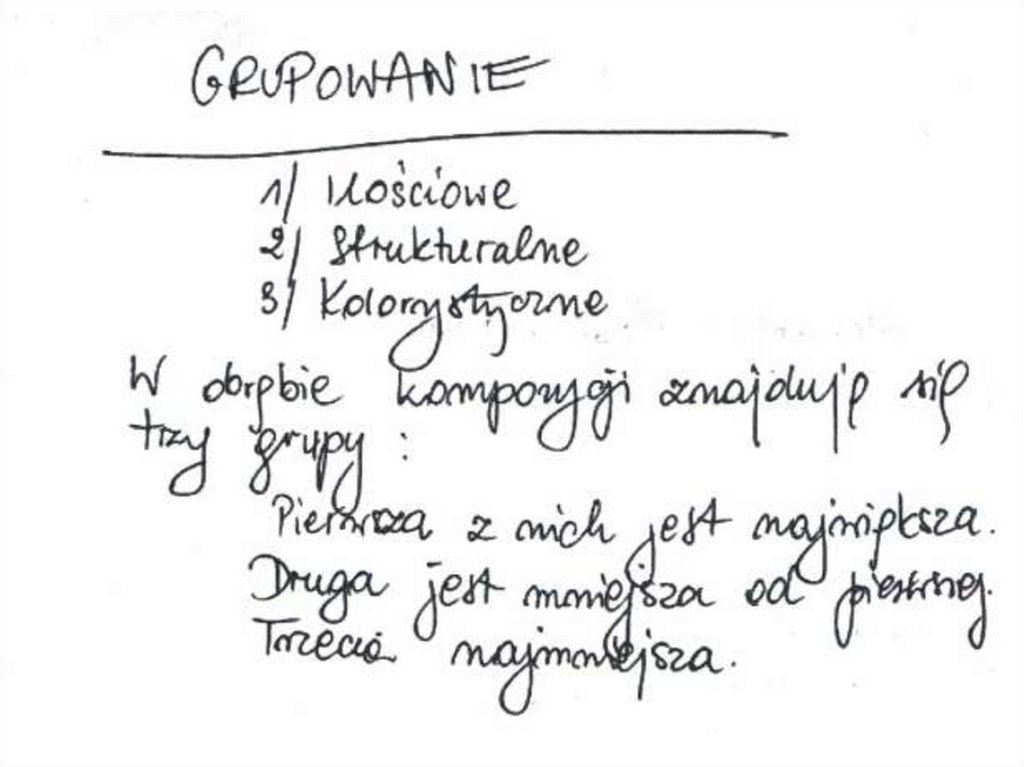 GRUPOWANIE
1/ Ilościowe
2/ Strukturalne
3/ Kolorystyczne
W obrębie kompozycji znajduję się
trzy grupy :
Pierwsza z nich jest największa.
Druga jest mniejsza od pierwszej.
Trzecia najmniejsza.